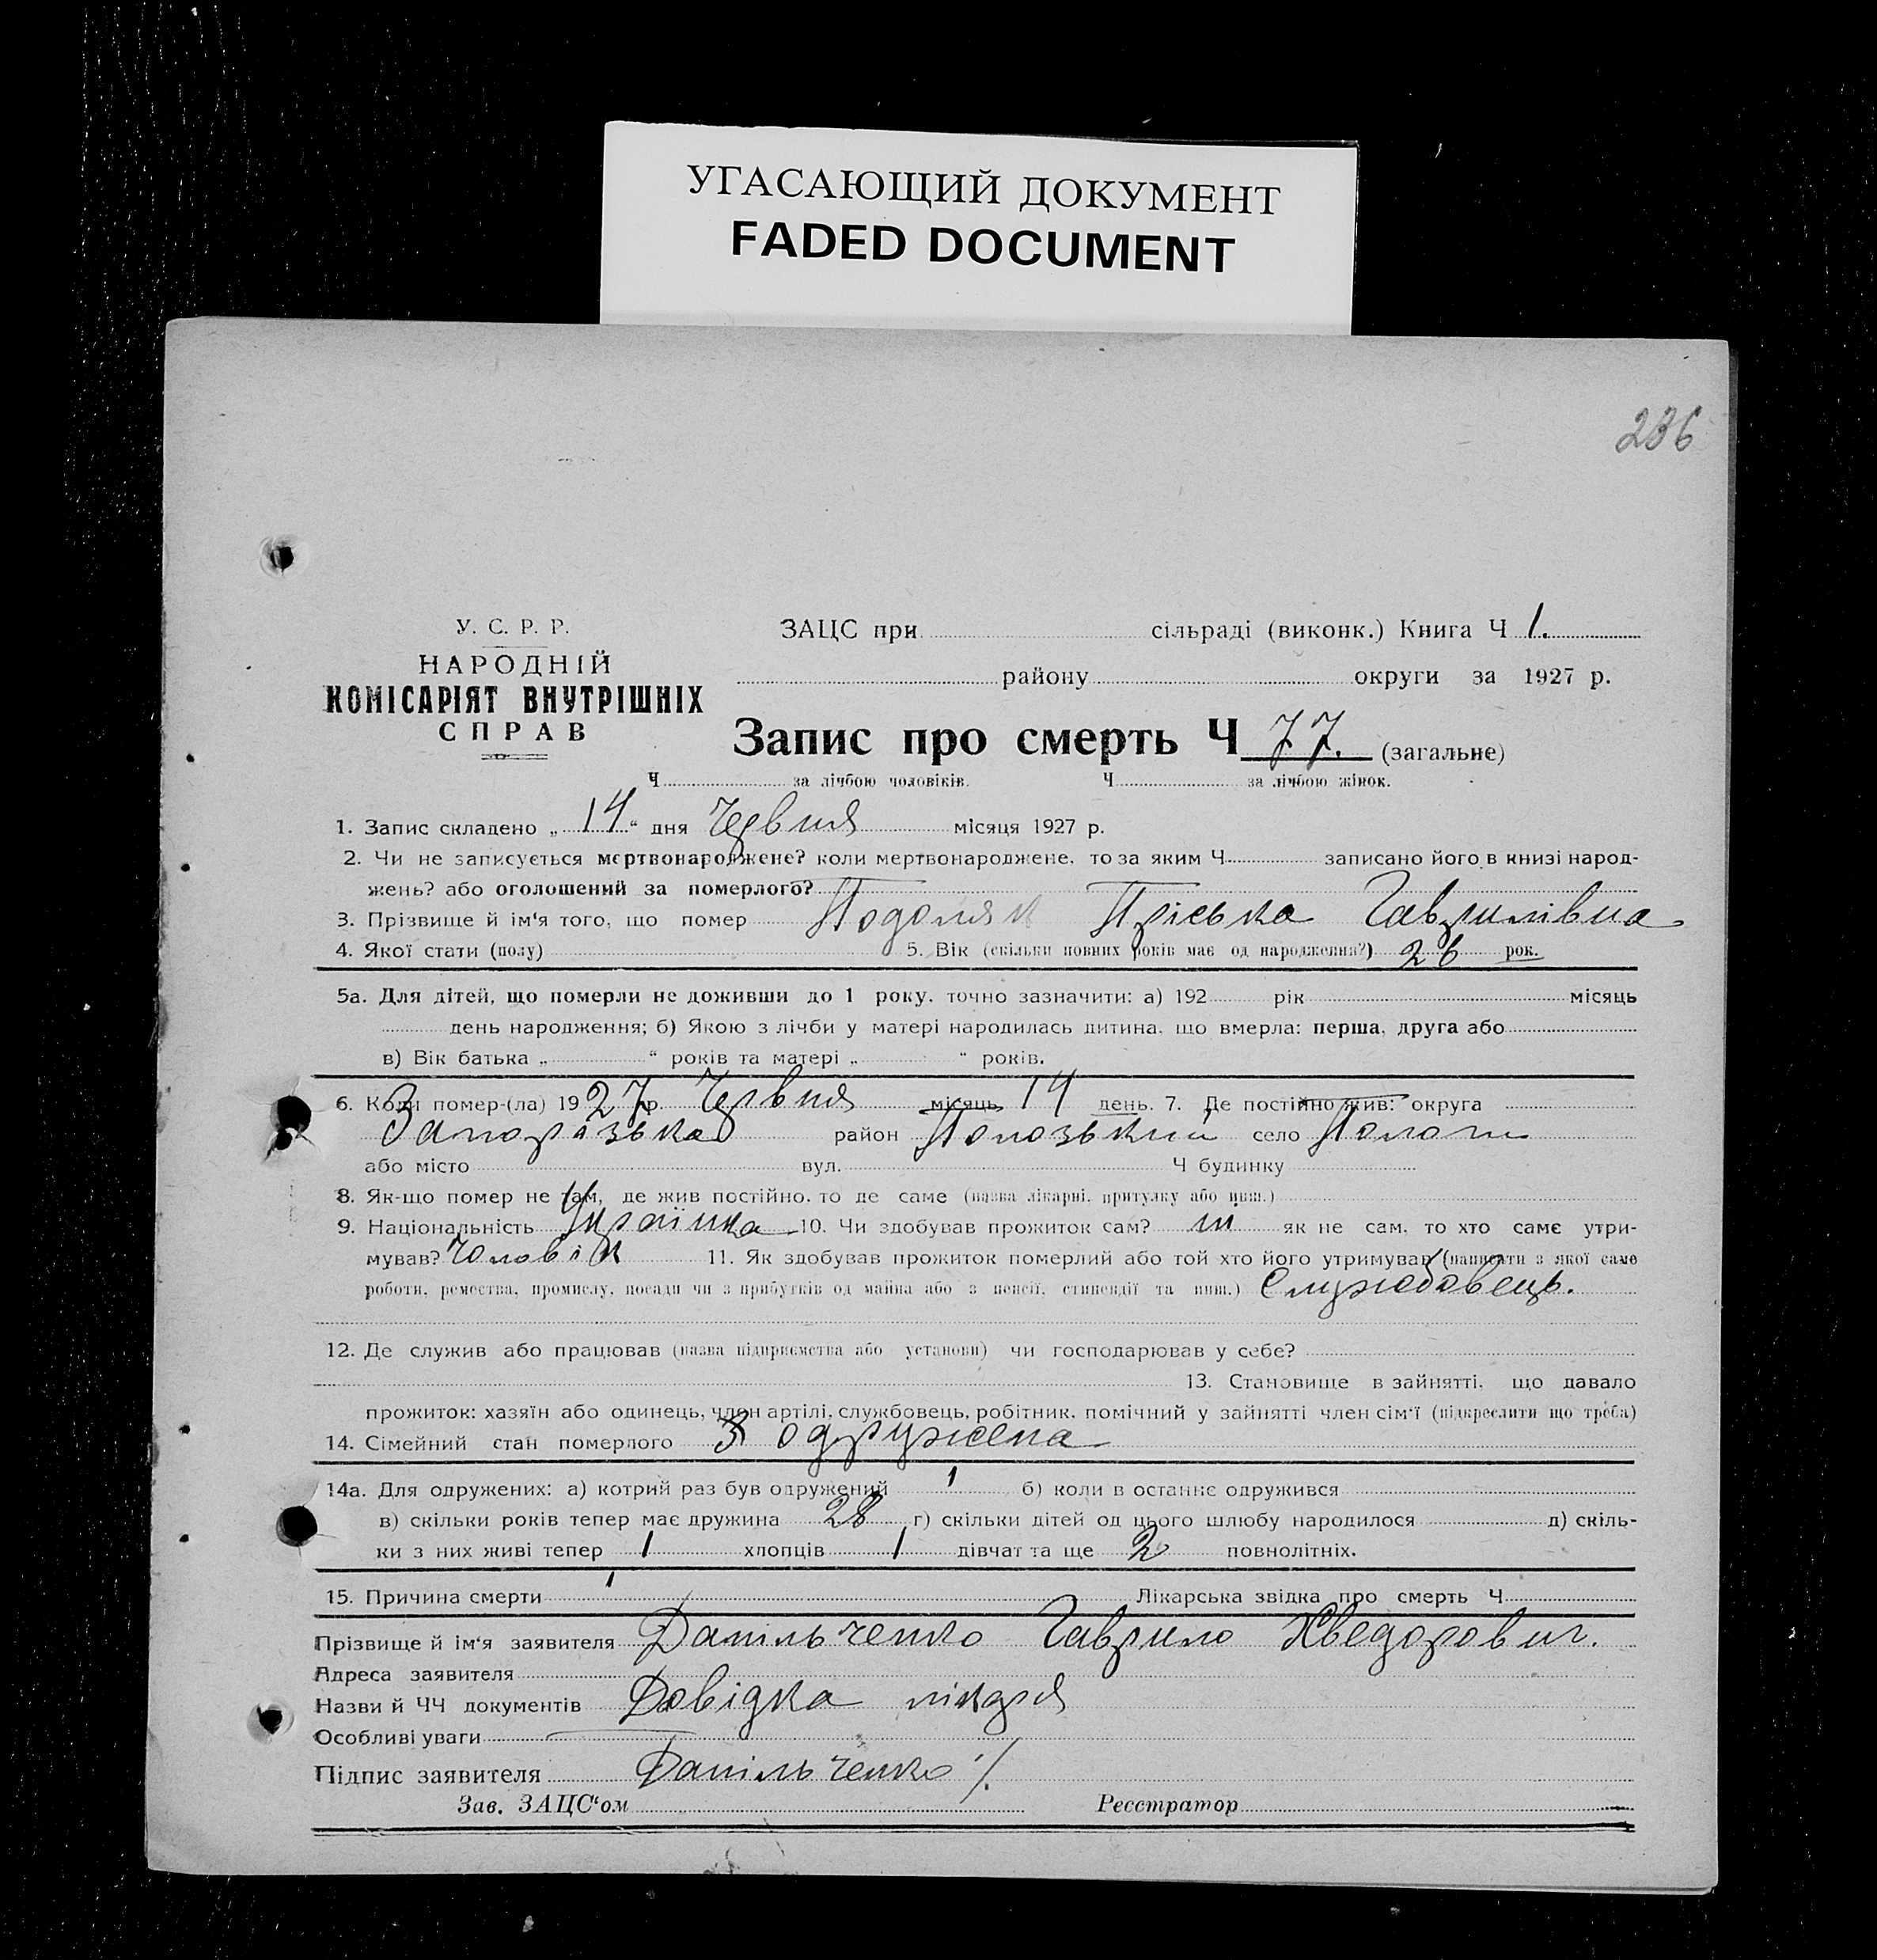 УГАСАЮЩИЙ ДОКУМЕНТ
FADED DOCUMENT
236
У. С. Р. Р.
НАРОДНІЙ
КОМІСАРІЯТ ВНУТРІШНІХ
СПРАВ
ЗАЦС при сільраді (виконк.) Книга Ч 1.
району округи за 1927 р.
Запис про смерть Ч 77. (загальне)
Ч за лічбою чоловіків. Ч за лічбою жінок.
1. Запис складено „ 14 “ дня Червня місяця 1927 р.
2. Чи не записується мертвонароджене? коли мертвонароджене, то за яким Ч записано його в книзі народ-
жень? або оголошений за померлого?
3. Прізвище й ім‘я того, що помер Подоляк Пріська Гаврилівна
4. Якої стати (полу) 5. Вік (скільки повних років має од народження?) 26 рок.
5а. Для дітей, що померли не доживши до 1 року, точно зазначити: а) 192 рік місяць
день народження; б) Якою з лічби у матері народилась дитина, що вмерла: перша, друга або
в) Вік батька „ “ років та матері „ “ років.
6. Коли помер-(ла) 1927 р. Червня місяць 14 день. 7. Де постійно жив: округа
Запорізька район Пологський село Пологи
або місто вул. Ч будинку
8. Як-що помер не там, де жив постійно, то де саме (назва лікарні, притулку або инш.)
9. Національність Українка 10. Чи здобував прожиток сам? ні як не сам, то хто саме утри-
мував? Чоловік 11. Як здобував прожиток померлий або той хто його утримував (написати з якої саме
роботи, ремества, промислу, посади чи з прибутків од майна або з пенсії, стипендії та инш.) Службовець.
12. Де служив або працював (назва підприємства або установи) чи господарював у себе?
13. Становище в зайнятті, що давало
прожиток: хазяїн або одинець, член артілі, службовець, робітник, помічний у зайнятті член сім‘ї (підкреслити що треба)
14. Сімейний стан померлого Зодружена
14а. Для одружених: а) котрий раз був одружений 1 б) коли в останнє одружився
в) скільки років тепер має дружина 28 г) скільки дітей од цього шлюбу народилося д) скіль-
ки з них живі тепер 1 хлопців 1 дівчат та ще 2 повнолітніх.
15. Причина смерти Лікарська звідка про смерть Ч
Прізвище й ім‘я заявителя Данільченко Гаврило Хведорович.
Адреса заявителя
Назви й ЧЧ документів Довідка лікаря
Особливі уваги
Підпис заявителя Данільченко
Зав. ЗАЦС‘ом Реєстратор